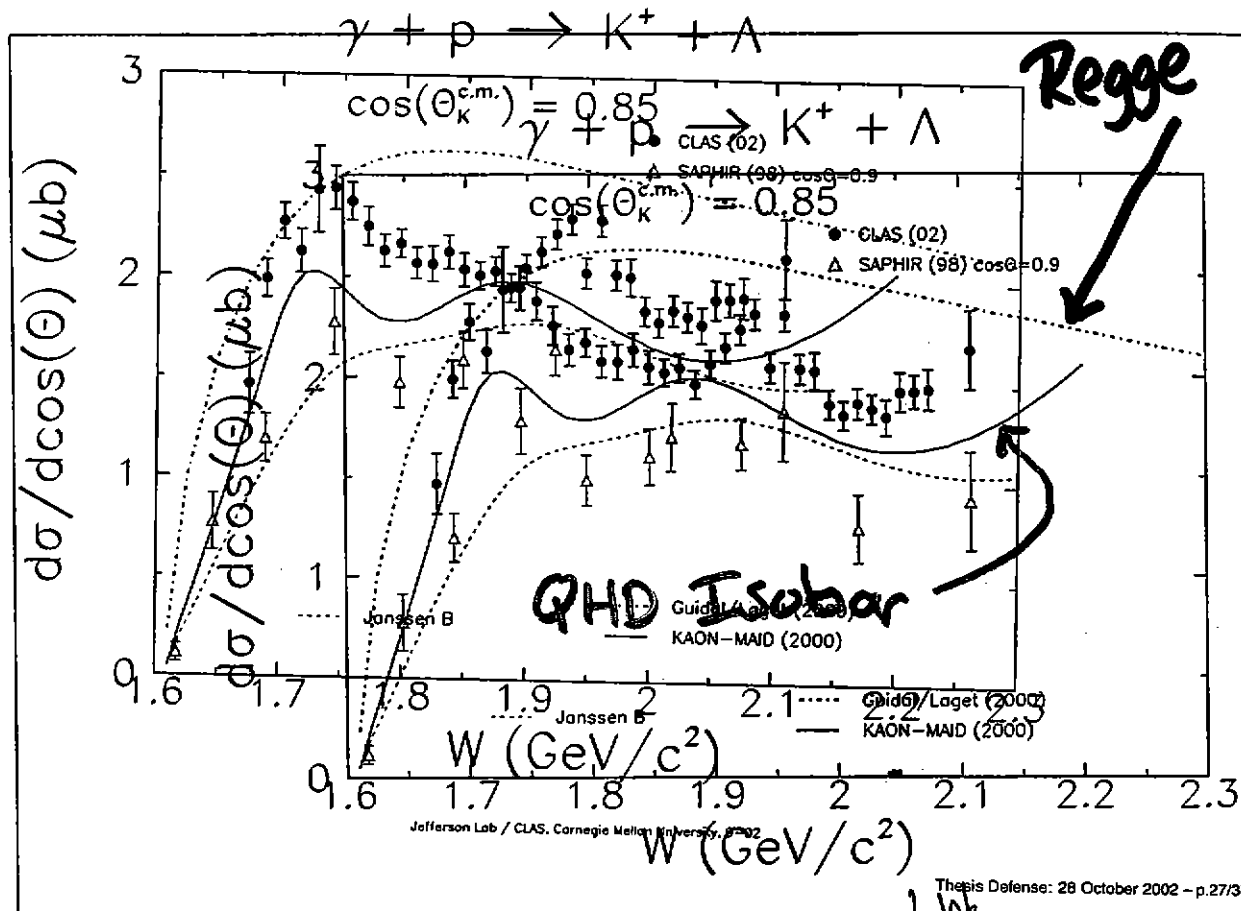 γ + p → K⁺ + Λ
Regge
3
cos(Θ_K^c.m.) = 0.85
CLAS (02)
SAPHIR (98) cosΘ=0.9
γ + p → K⁺ + Λ
3
cos(Θ_K^c.m.) = 0.85
CLAS (02)
SAPHIR (98) cosΘ=0.9
dσ/dcos(Θ) (μb)
dσ/dcos(Θ) (μb)
2
2
1
1
0
QHD Isobar
Janssen B
Guidal/Laget (2000)
KAON-MAID (2000)
1.6 1.7 1.8 1.9 2 2.1 2.2 2.3
W (GeV/c²)
Janssen B
Guidal/Laget (2000)
KAON-MAID (2000)
0
1.6 1.7 1.8 1.9 2 2.1 2.2 2.3
Jefferson Lab / CLAS, Carnegie Mellon University,
W (GeV/c²)
Thesis Defense: 28 October 2002 – p.27/3